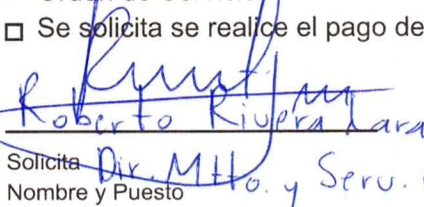 □ Se solicita se realice el pago de
Roberto Rivera Lara
Solicita Dir. Mtto. y Serv.
Nombre y Puesto